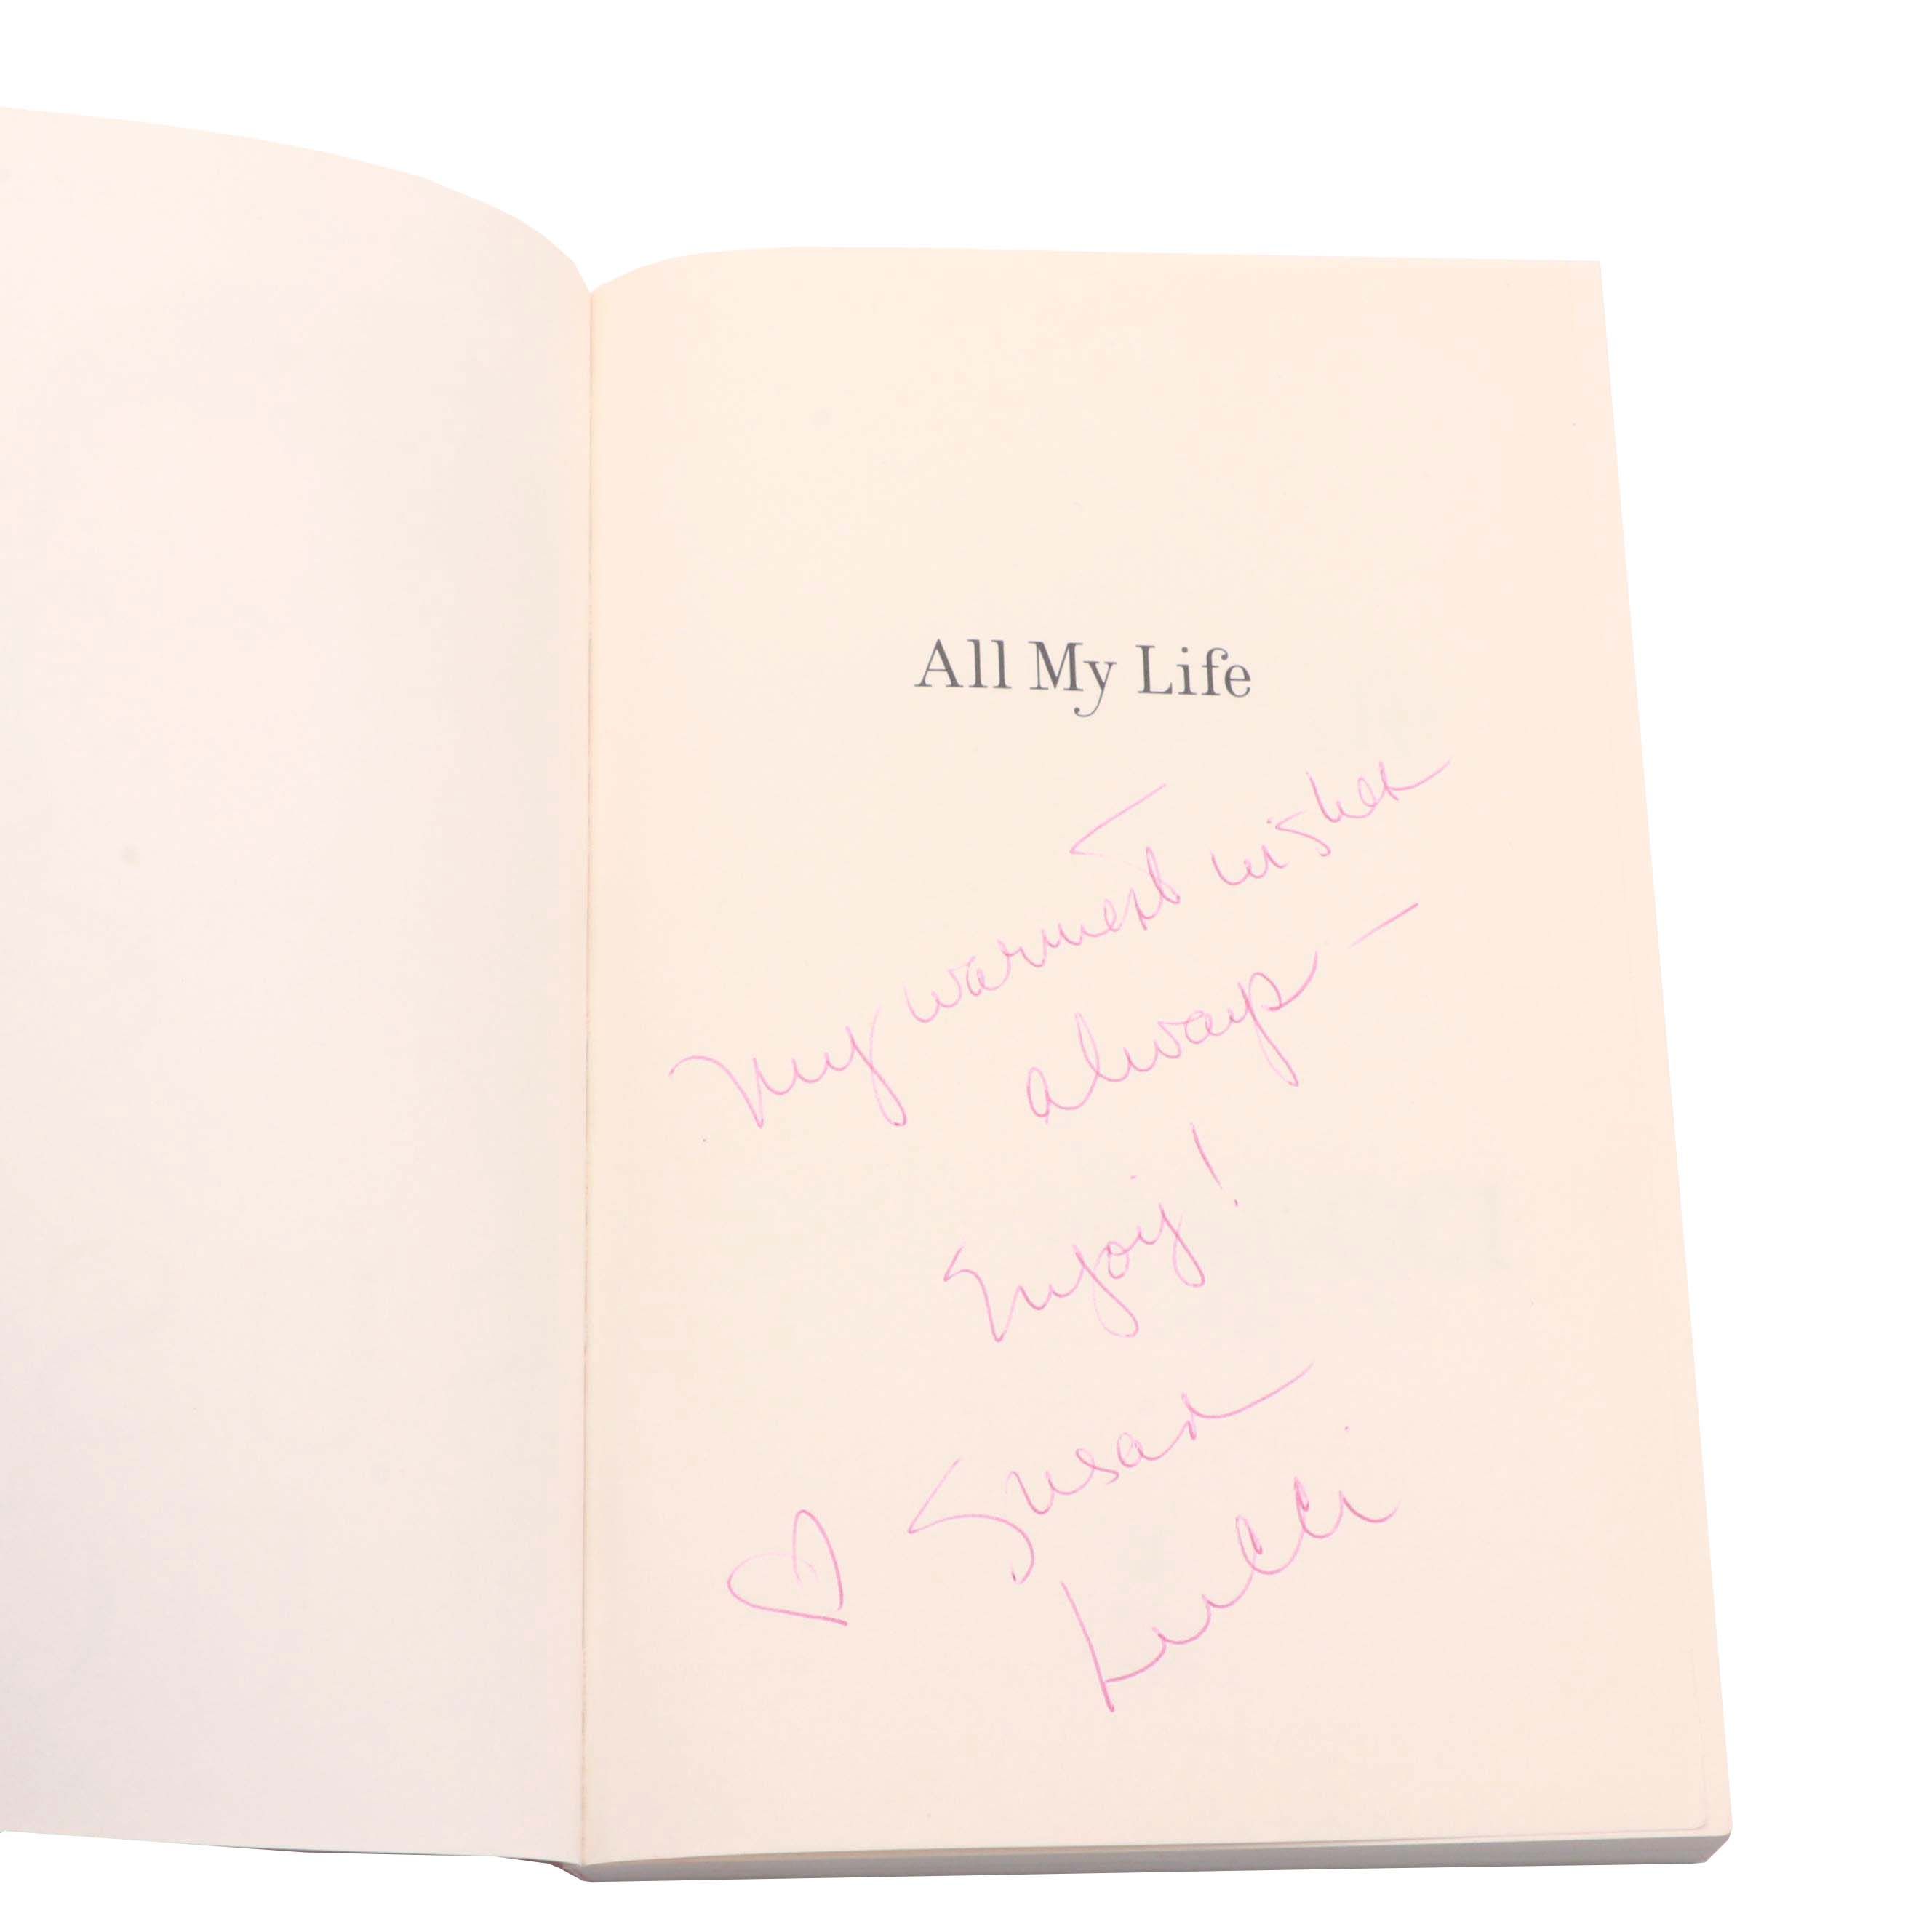 All My Life
My warmest wishes
always —
Enjoy!
♡ Susan
Lucci